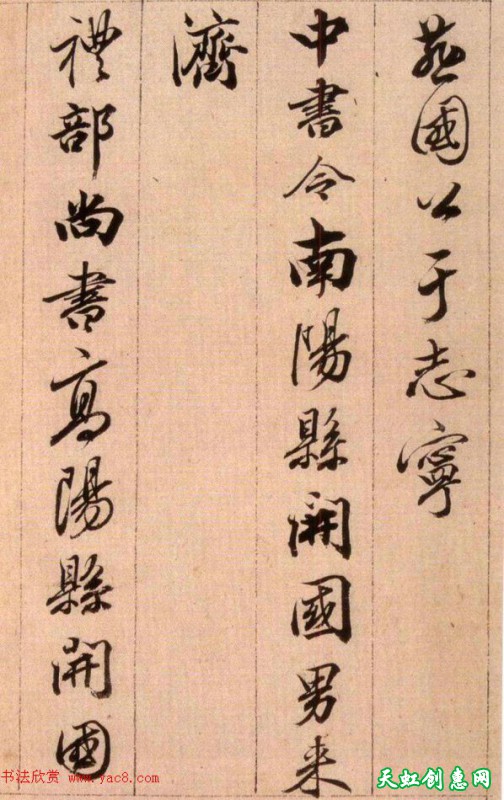 燕國公于志寧
中書令南陽縣開國男来
濟
禮部尚書高陽縣開國
书法欣赏 www.yac8.com
天虹创意网